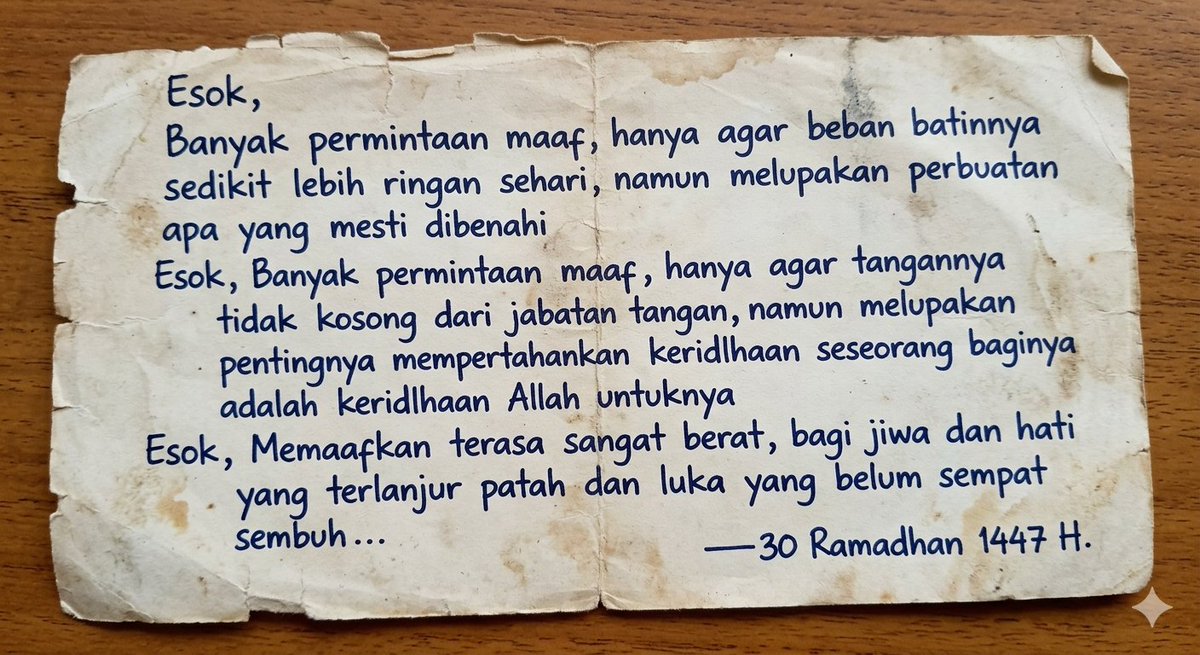 Esok,
Banyak permintaan maaf, hanya agar beban batinnya
sedikit lebih ringan sehari, namun melupakan perbuatan
apa yang mesti dibenahi
Esok, Banyak permintaan maaf, hanya agar tangannya
tidak kosong dari jabatan tangan, namun melupakan
pentingnya mempertahankan keridlhaan seseorang baginya
adalah keridlhaan Allah untuknya
Esok, Memaafkan terasa sangat berat, bagi jiwa dan hati
yang terlanjur patah dan luka yang belum sempat
sembuh...
—30 Ramadhan 1447 H.